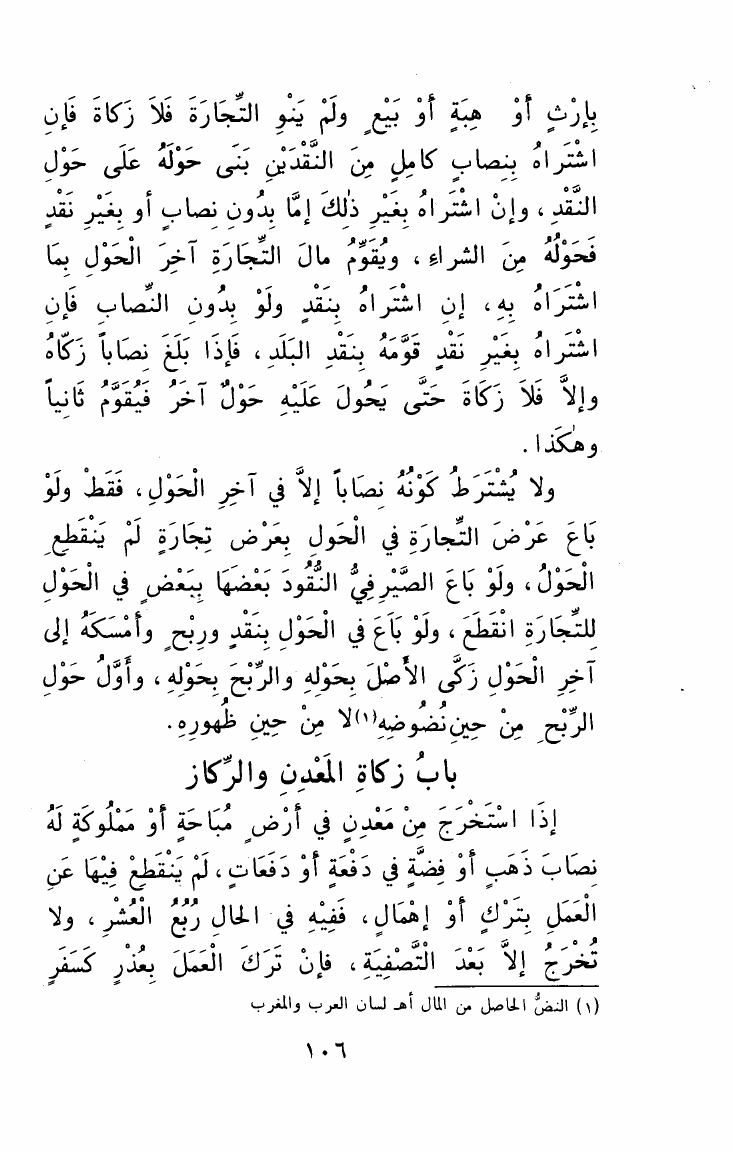 بِإرْثٍ أَوْ هِبَةٍ أَوْ بَيْعٍ ولَمْ يَنْوِ التِّجَارَةَ فَلاَ زَكاةَ فَإن
اشْتَراهُ بِنِصابٍ كامِلٍ مِنَ النَّقْدَيْنِ بَنَى حَوْلَهُ عَلَى حَوْلِ
النَّقْدِ ، وإنْ اشْتَراهُ بِغَيْرِ ذٰلِكَ إمَّا بِدُونِ نِصابٍ أو بِغَيْرِ نَقْدٍ
فَحَوْلُهُ مِنَ الشراءِ ، ويُقَوِّمُ مالَ التِّجَارَةِ آخِرَ الْحَوْلِ بِمَا
اشْتَرَاهُ بِهِ ، إنِ اشْتَراهُ بِنَقْدٍ وَلَوْ بِدُونِ النِّصابِ فَإن
اشْتَراهُ بِغَيْرِ نَقْدٍ قَوَّمَهُ بِنَقْدِ البَلَدِ ، فَإذَا بَلَغَ نِصَاباً زَكَّاهُ
وإلاَّ فَلاَ زَكَاةَ حَتَّى يَحُولَ عَلَيْهِ حَوْلٌ آخَرُ فَيُقَوَّمُ ثَانِياً
وهٰكَذا .
ولا يُشْتَرَطُ كَوْنُهُ نِصَاباً إلاَّ في آخِرِ الْحَوْلِ ، فَقَطْ ولَوْ
بَاعَ عَرْضَ التِّجارَةِ في الْحَولِ بِعَرْضِ تِجَارَةٍ لَمْ يَنْقَطِعِ
الْحَوْلُ ، ولَوْ بَاعَ الصَّيْرِفِيُّ النُّقُودَ بَعْضَهَا بِبَعْضٍ في الْحَوْلِ
لِلتِّجَارَةِ انْقَطَعَ ، ولَوْ بَاَعَ في الْحَوْلِ بِنَقْدٍ ورِبْحٍ وأَمْسَكَهُ إلى
آخِرِ الْحَوْلِ زَكَّى الأَصْلَ بِحَوْلِهِ والرِّبْحَ بِحَوْلِهِ ، وأَوَّلُ حَوْلِ
الرِّبْحِ مِنْ حِينِ نُضُوضِهِ(١) لا مِنْ حِينِ ظُهورِهِ .
بابُ زكاةِ المَعْدِنِ والرِّكازِ
إذَا اسْتَخْرَجَ مِنْ مَعْدِنٍ في أَرْضٍ مُبَاحَةٍ أَوْ مَمْلُوكَةٍ لَهُ
نِصَابَ ذَهَبٍ أَوْ فِضَّةٍ في دَفْعَةٍ أَوْ دَفَعَاتٍ ، لَمْ يَنْقَطِعْ فِيْهَا عَنِ
الْعَمَلِ بِتَرْكٍ أَوْ إهْمالٍ ، فَفِيْهِ في الحالِ رُبُعُ الْعُشْرِ ، ولا
تُخْرَجُ إلاَّ بَعْدَ التَّصْفِيَةِ ، فإنْ تَرَكَ الْعَمَلَ بِعُذْرٍ كَسَفَرٍ
(١) النضُّ الحاصل من المال أهـ لسان العرب والمغرب
١٠٦